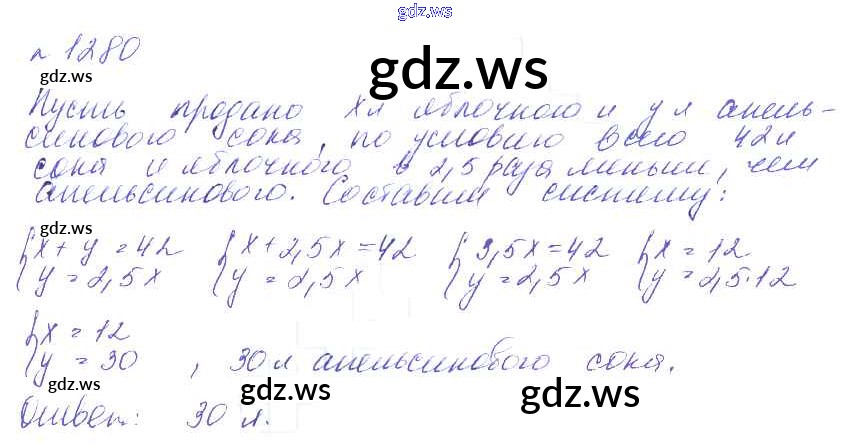 gdz.ws
n 1280
gdz.ws
gdz.ws
Пусть продано x л яблочного и y л апель-
синового сока, по условию всего 42 л
сока и яблочного в 2,5 раза меньше, чем
апельсинового. Составим систему:
gdz.ws
gdz.ws
{x + y = 42 {x + 2,5x = 42 {3,5x = 42 {x = 12
y = 2,5x y = 2,5x y = 2,5x y = 2,5·12
{x = 12
y = 30 , 30 л апельсинового сока.
gdz.ws
gdz.ws
gdz.ws
Ответ: 30 л.